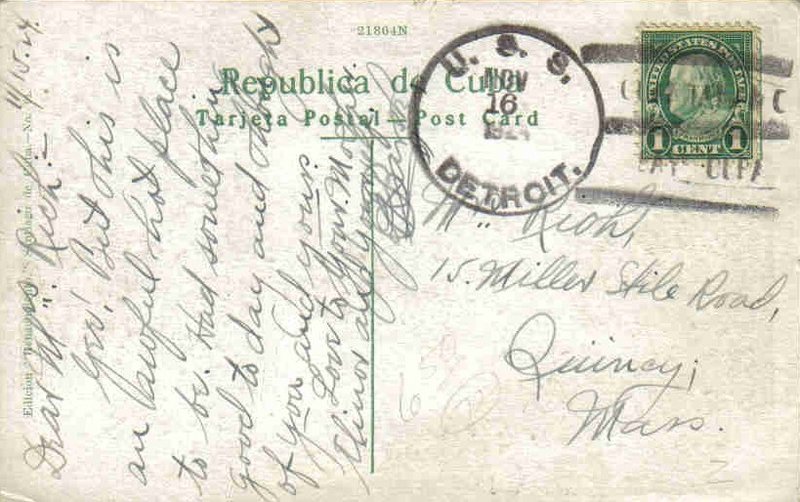 21864N
Republica de Cuba
Tarjeta Postal — Post Card
U. S. S.
NOV
16
DETROIT.
UNITED STATES POSTAGE
1 CENT 1
11/15.24
Dear Mrs. Rich:-
Gee! But this is
an lawful hot place
to be. Had something
good to day and thought
of you and yours
Love to Your Mother
Elinor and
Mrs. Rich,
15. Miller Stile Road,
Quincy,
Mass.